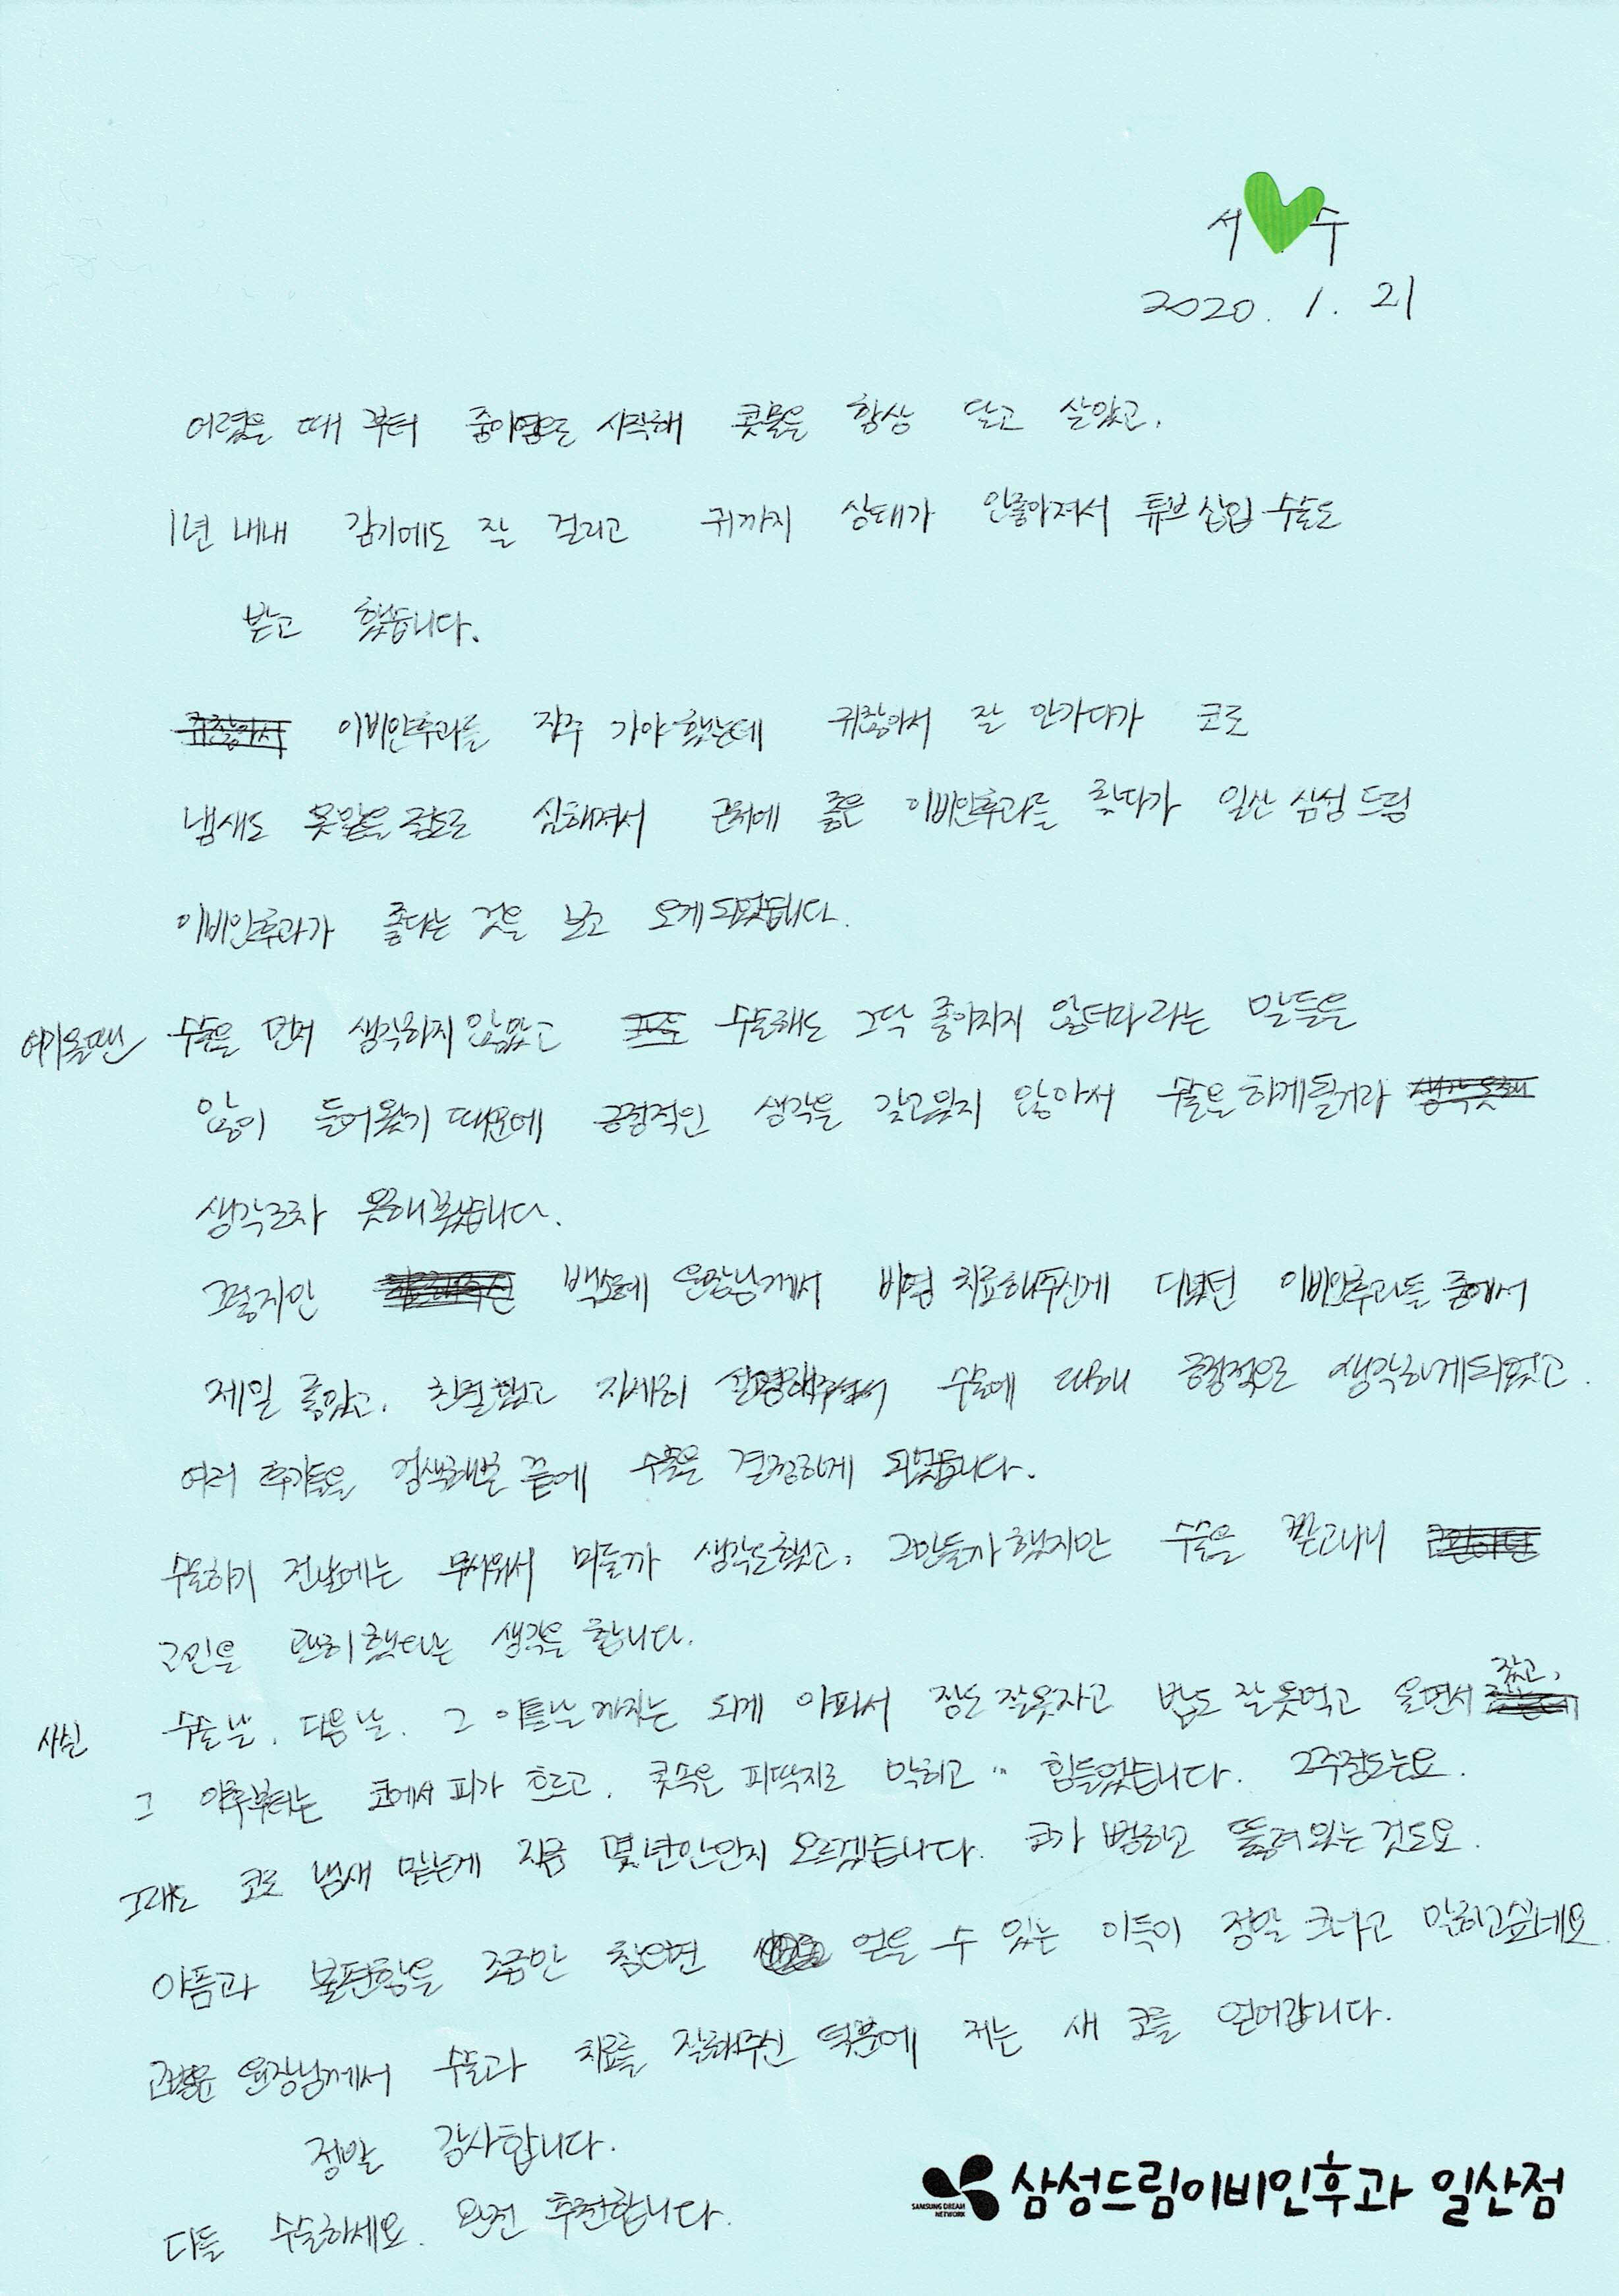 서 수
2020. 1. 21
어렸을 때 부터 중이염으로 시작해 콧물을 항상 달고 살았고,
1년 내내 감기에도 잘 걸리고 귀까지 상태가 안좋아져서 튜브 삽입 수술도
받고 했습니다.
귀찮아서 이비인후과를 자주 가야했는데 귀찮아서 잘 안가다가 코로
냄새도 못맡을 정도로 심해져서 근처에 좋은 이비인후과를 찾다가 일산 삼성 드림
이비인후과가 좋다는 것을 보고 오게되었습니다.
여기올땐 수술을 먼저 생각하지 않았고 수술해도 그닥 좋아지지 않더라 라는 말들을
많이 들어왔기 때문에 긍정적인 생각을 갖고있지 않아서 수술을 하게될거라 생각못해
생각조차 못해봤습니다.
그렇지만 원장님께서 비염 치료해주신게 다녔던 이비인후과들 중에서
제일 좋았고, 친절했고 자세히 설명해주셔서 수술에 대해 긍정적으로 생각하게되었고.
여러 후기들을 검색해본 끝에 수술을 결정하게 되었습니다.
수술하기 전날에는 무서워서 미룰까 생각도했고, 그만둘까 했지만 수술을 받고나니
고민을 괜히했다는 생각을 합니다.
사실 수술날, 다음날, 그 이튿날 까지는 되게 아파서 잠도 잘못자고 밥도 잘 못먹고 울면서 잤고,
그 이후부터는 코에서 피가 흐르고, 콧속은 피딱지로 막히고 … 힘들었습니다. 2주정도는요.
그래도 코로 냄새 맡는게 지금 몇년만인지 모르겠습니다. 코가 뻥하고 뚫려있는 것도요.
아픔과 불편함을 조금만 참으면 얻을 수 있는 이득이 정말 크다고 말하고싶네요.
원장님께서 수술과 치료를 잘해주신 덕분에 저는 새 코를 얻어갑니다.
정말 감사합니다.
다들 수술하세요. 완전 추천합니다.
SAMSUNG DREAM NETWORK 삼성드림이비인후과 일산점